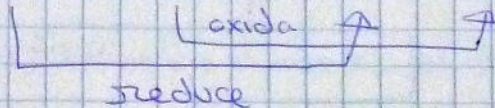 oxida
reduce